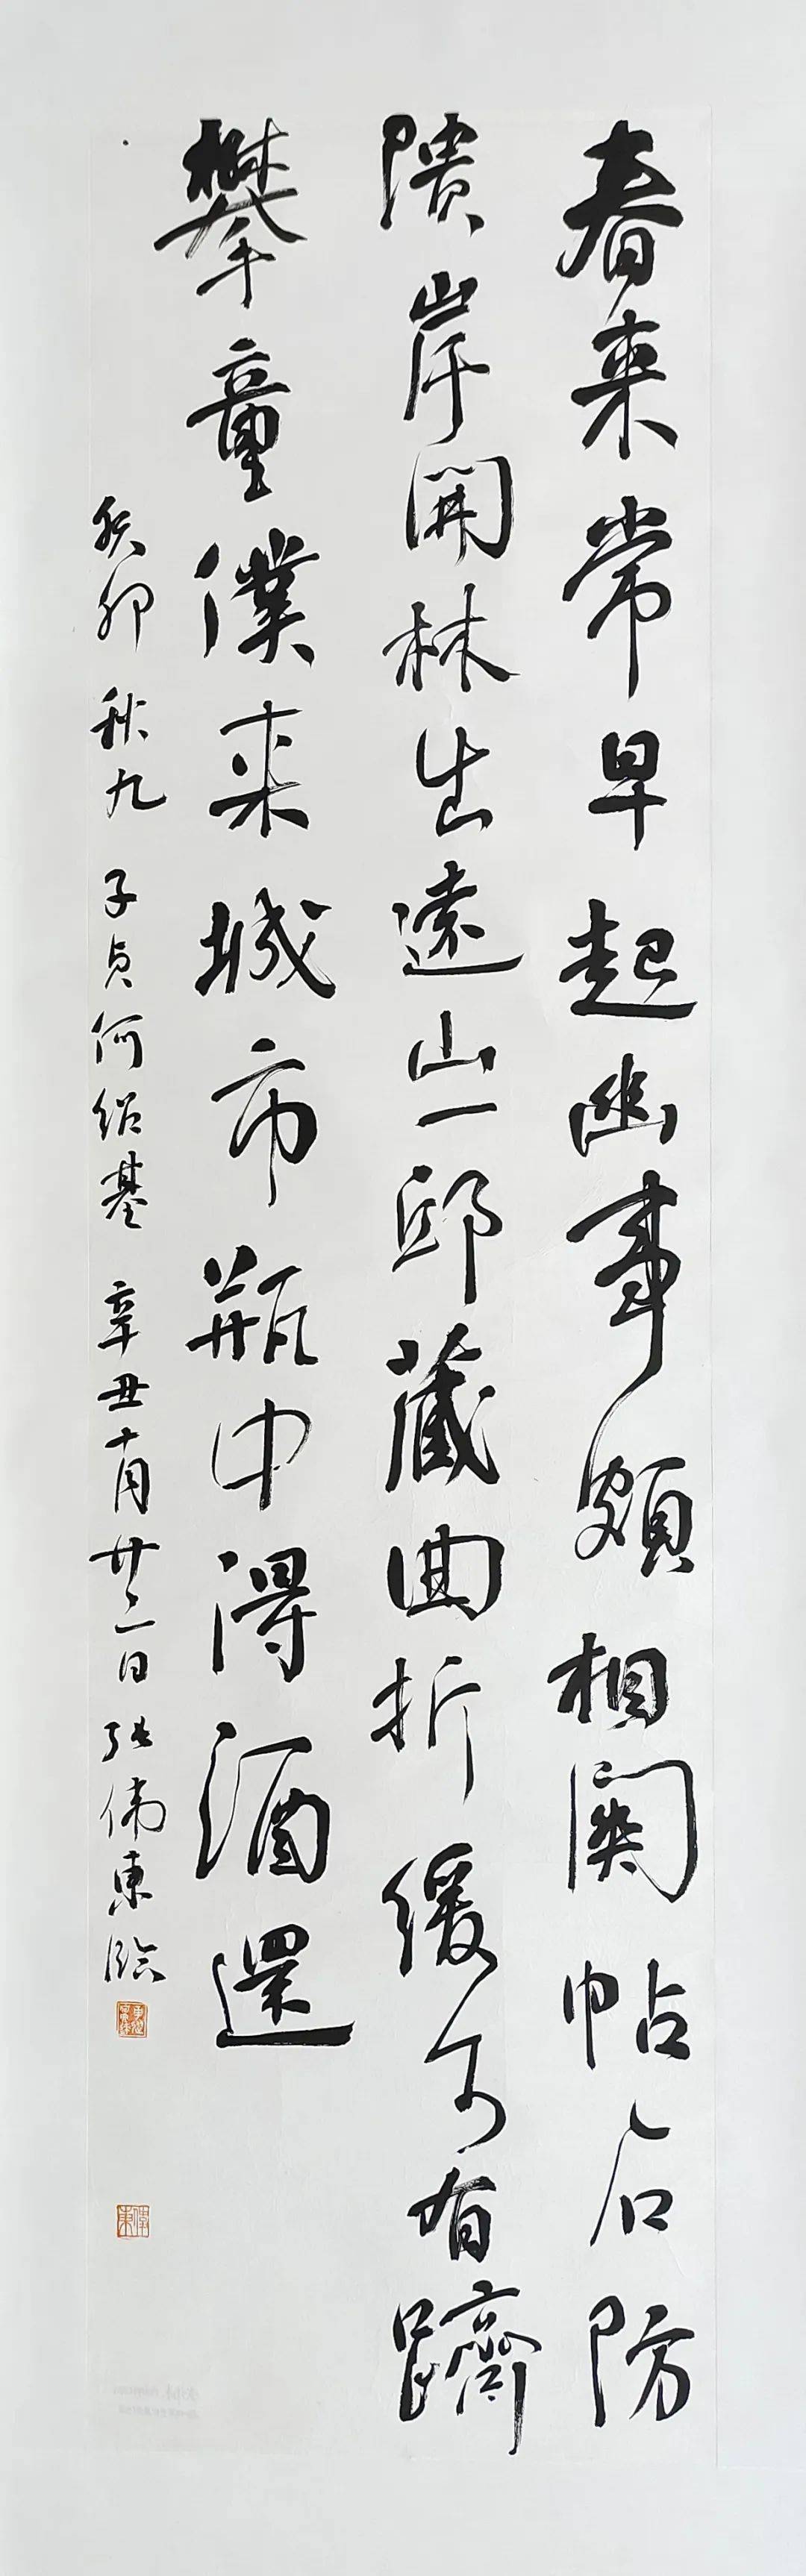 春來常早起幽事頗相關帖石防
隤岸開林出遠山一邱藏曲折緩步有躋
攀童僕来城市瓶中得酒還
癸卯秋九 子貞何紹基 辛丑十月廿二日 张偉東臨
偉東